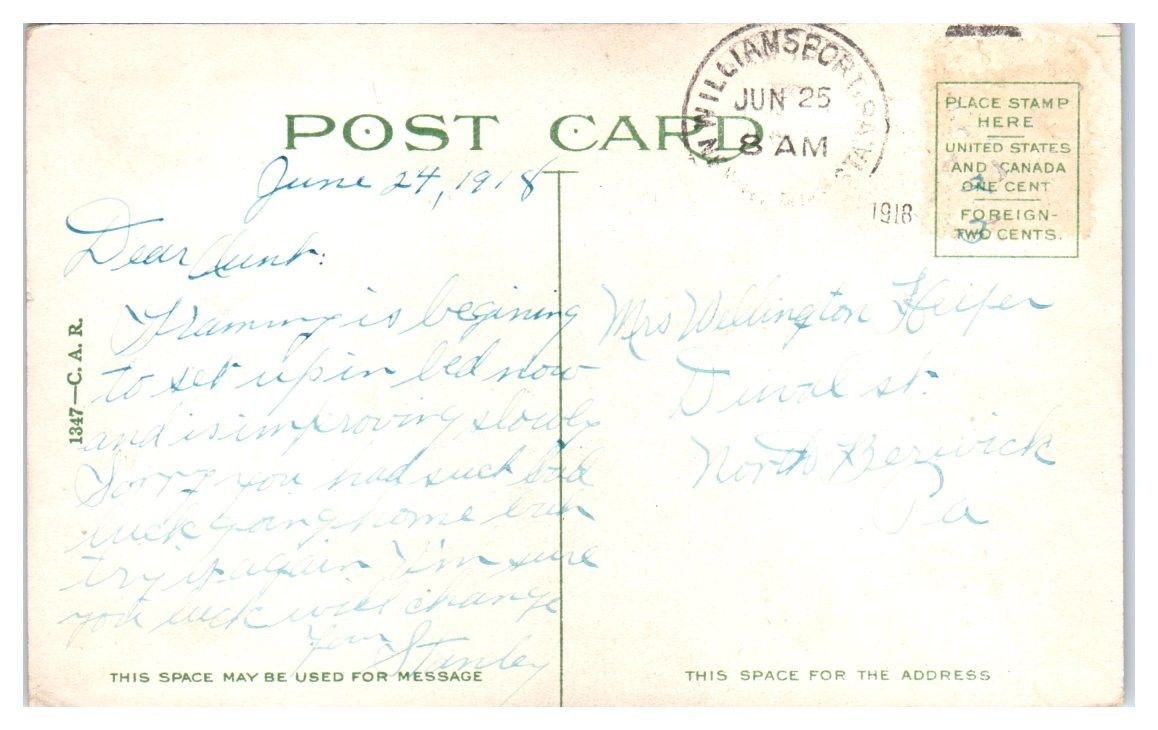 POST CARD
WILLIAMSPORT, PA.
JUN 25
8 AM
1918
PLACE STAMP
HERE
UNITED STATES
AND CANADA
ONE CENT
FOREIGN-
TWO CENTS.
1347—C. A. R.
June 24, 1918
Dear Aunt:
is begining
to set up in bed now
and is improving slowly
Sorry you had such bad
luck going home but
try it again I'm sure
you luck will change
Your Stanley
Mrs Wellington Heifer
Duval st.
North Berwick
Pa
THIS SPACE MAY BE USED FOR MESSAGE
THIS SPACE FOR THE ADDRESS